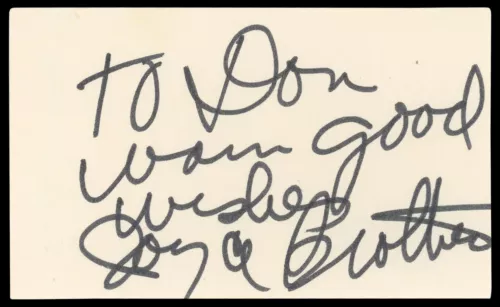 To Don
warm good
wishes
Joyce Brothers